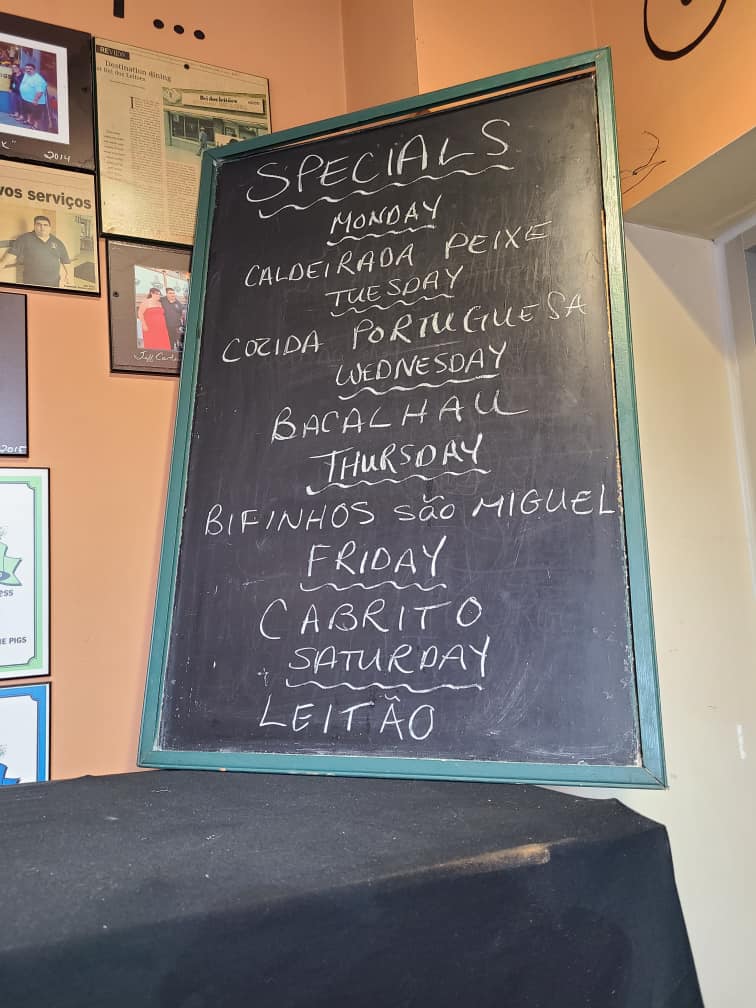 REVIEW
Destination dining
2014
vos serviços
2015
ess
E PIGS
SPECIALS
MONDAY
CALDEIRADA PEIXE
TUESDAY
COZIDA PORTUGUESA
WEDNESDAY
BACALHAU
THURSDAY
BIFINHOS são MIGUEL
FRIDAY
CABRITO
SATURDAY
LEITÃO